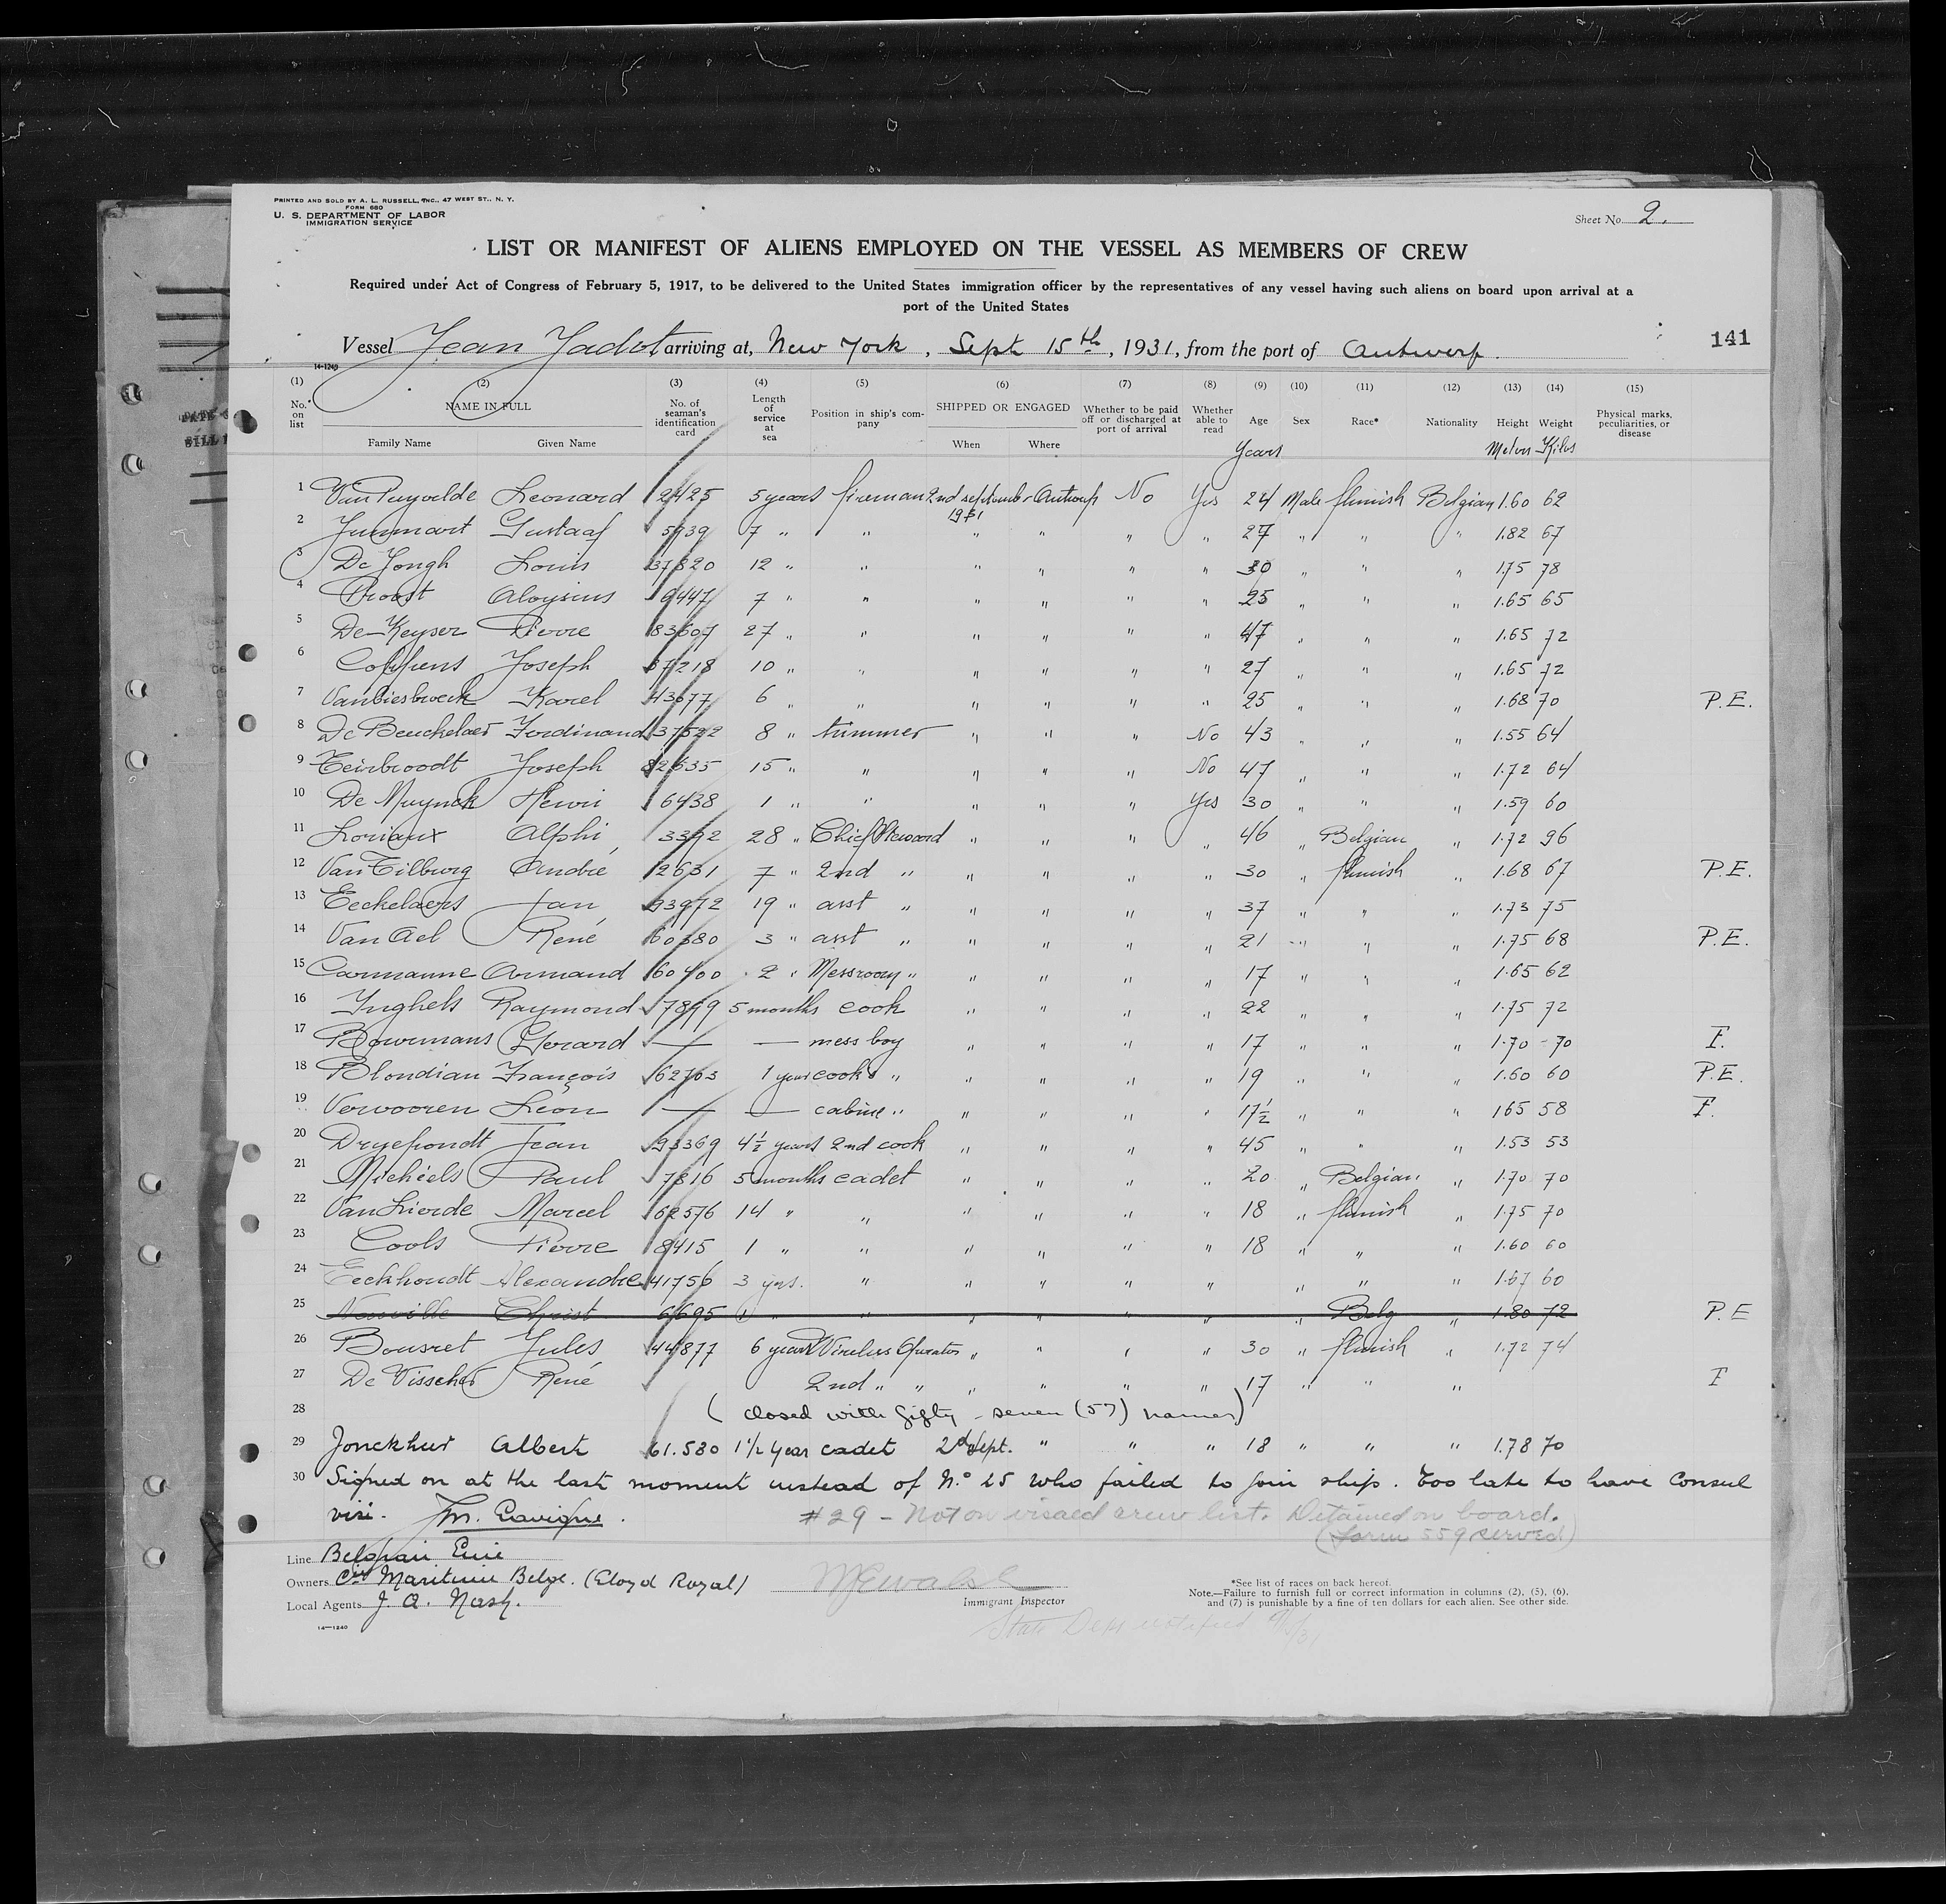 PRINTED AND SOLD BY A. L. RUSSELL, INC., 47 WEST ST., N. Y.
FORM 680
U. S. DEPARTMENT OF LABOR
IMMIGRATION SERVICE
Sheet No. 2.
LIST OR MANIFEST OF ALIENS EMPLOYED ON THE VESSEL AS MEMBERS OF CREW
Required under Act of Congress of February 5, 1917, to be delivered to the United States immigration officer by the representatives of any vessel having such aliens on board upon arrival at a
port of the United States
Vessel Jean Jadot arriving at, New York, Sept 15th, 1931, from the port of Antwerp.
141
14-1240
(1) (2) (3) (4) (5) (6) (7) (8) (9) (10) (11) (12) (13) (14) (15)
No. on list NAME IN FULL Family Name Given Name No. of seaman's identification card Length of service at sea Position in ship's company SHIPPED OR ENGAGED When Where Whether to be paid off or discharged at port of arrival Whether able to read Age Sex Race* Nationality Height Weight Physical marks, peculiarities, or disease
Years Meters Kilos
1 Van Puyvelde Leonard 2425 5 years fireman 2nd september 1931 Antwerp No Yes 24 Male flemish Belgian 1.60 62
2 Gustaaf 5939 7 " " " " " " 27 " " " 1.82 67
3 De Jongh Louis 37820 12 " " " " " " 30 " " " 1.75 78
4 Proost Aloysius 9447 7 " " " " " " 25 " " " 1.65 65
5 De Keyser Pierre 83607 27 " " " " " " 47 " " " 1.65 72
6 Coppens Joseph 37218 10 " " " " " " 27 " " " 1.65 72
7 Vanbiesbroeck Karel 43677 6 " " " " " " 25 " " " 1.68 70 P.E.
8 De Beuckelaer Ferdinand 37522 8 " trimmer " " " No 43 " " " 1.55 64
9 Teirbroodt Joseph 82635 15 " " " " " No 47 " " " 1.72 64
10 De Muynck Henri 6438 1 " " " " " Yes 30 " " " 1.59 60
11 Loriaux Alphi 3392 28 " Chief Steward " " " " 46 " Belgian " 1.72 96
12 Van Tilburg André 2631 7 " 2nd " " " " " 30 " flemish " 1.68 67 P.E.
13 Eeckelaers Jan 93972 19 " asst " " " " " 37 " " " 1.73 75
14 Van Ael René 60380 3 " asst " " " " " 21 " " " 1.75 68 P.E.
15 Carmanne Armand 60400 2 " Messroom " " " " " 17 " " " 1.65 62
16 Inghels Raymond 7899 5 months cook " " " " 22 " " " 1.75 72
17 Bouwmans Gerard — — mess boy " " " " 17 " " " 1.70 70 F.
18 Blondian François 62703 1 year cook's " " " " " 19 " " " 1.60 60 P.E.
19 Vervooren Léon — — cabine " " " " " 17½ " " " 1.65 58 F.
20 Dryepondt Jean 93369 4½ years 2nd cook " " " " 45 " " " 1.53 53
21 Michiels Paul 7816 5 months cadet " " " " 20 " Belgian " 1.70 70
22 Van Lierde Marcel 62576 14 " " " " " " 18 " flemish " 1.75 70
23 Cools Pierre 8415 1 " " " " " " 18 " " " 1.60 60
24 Eeckhoudt Alexandre 41756 3 yrs. " " " " " " " " 1.67 60
25 Christ 6695 1 " " " " " " " Belg " 1.80 72 P.E
26 Bousret Jules 44877 6 years Wireless Operator " " " " 30 " flemish " 1.72 74
27 De Visscher René 2nd " " " " " " 17 " " " F
28 (closed with fifty-seven (57) names)
29 Jonckheer Albert 61.580 1½ year cadet 2d Sept. " " " 18 " " " 1.78 70
30 Signed on at the last moment instead of No. 25 who failed to join ship. Too late to have Consul
visé.
#29 - Not on visaed crew list. Detained on board.
(Form 559 served)
Line Belgian Line
Owners Cie Maritime Belge. (Lloyd Royal)
Local Agents J. A. Nash.
Immigrant Inspector
State Dept notified
*See list of races on back hereof.
Note.—Failure to furnish full or correct information in columns (2), (5), (6),
and (7) is punishable by a fine of ten dollars for each alien. See other side.
14—1240